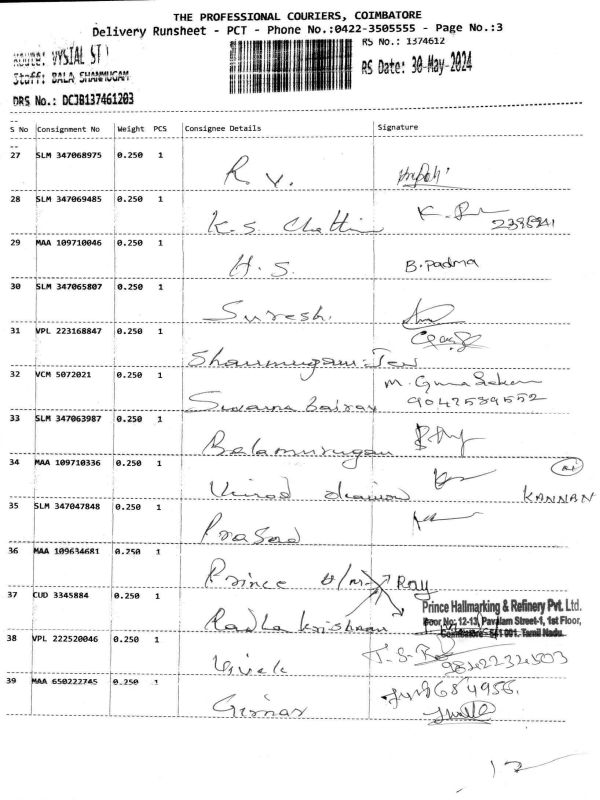 THE PROFESSIONAL COURIERS, COIMBATORE
Delivery Runsheet - PCT - Phone No.:0422-3505555 - Page No.:3
Route: VYSIAL ST 1
RS No.: 1374612
Staff: BALA SHANMUGAM
RS Date: 30-May-2024
DRS No.: DCJB137461203
S No Consignment No Weight PCS Consignee Details Signature
27 SLM 347068975 0.250 1 R. V.
28 SLM 347069485 0.250 1 K. S. Chetti
29 MAA 109710046 0.250 1 H. S. B. Padma
30 SLM 347065807 0.250 1 Suresh.
31 VPL 223168847 0.250 1 Shanmugam
32 VCM 5072021 0.250 1 Swarna bairav M. Gunasekaran
9042589552
33 SLM 347063987 0.250 1 Balamurugan
34 MAA 109710336 0.250 1 KANNAN
35 SLM 347047848 0.250 1 Prasad
36 MAA 109634681 0.250 1 Prince
37 CUD 3345884 0.250 1 Radha krishnan
Prince Hallmarking & Refinery Pvt. Ltd.
Door No: 12-13, Pavalam Street-1, 1st Floor,
Coimbatore - 541 001. Tamil Nadu.
38 VPL 222520046 0.250 1 Vivek
39 MAA 650222745 0.250 1 Girnar